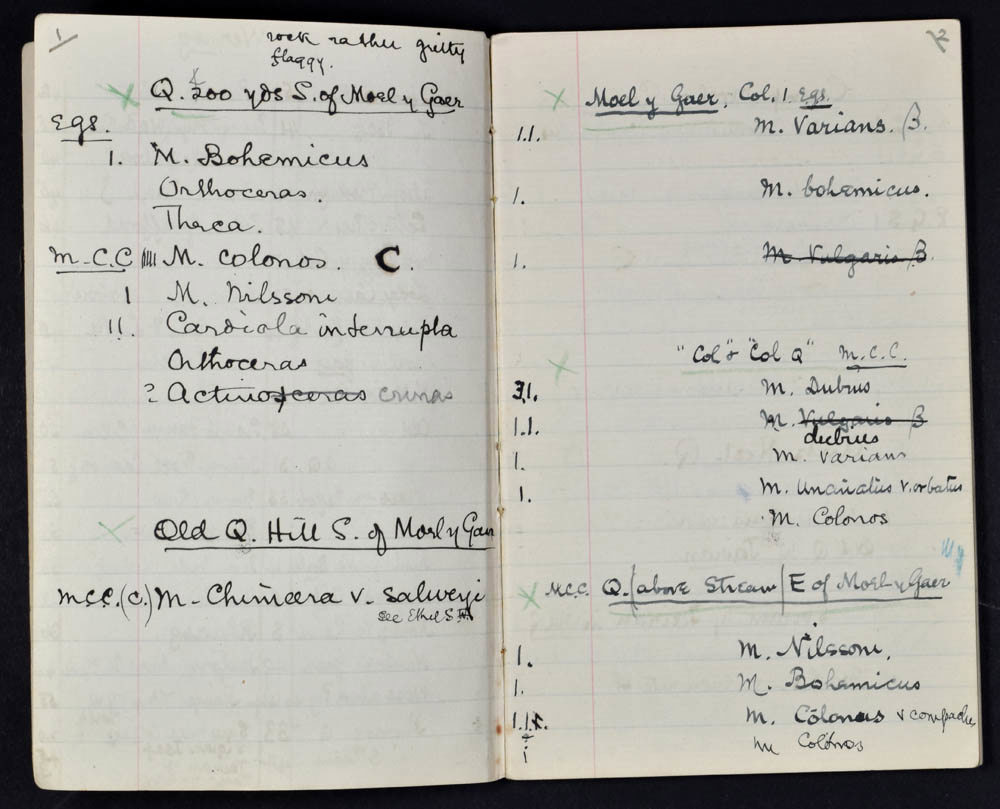 1
rock rather gritty
flaggy.
Q. 200 yds S. of Moel y Gaer
Egs.
1. M. Bohemicus
Orthoceras.
Theca.
M.C.C IIII M. Colonos. C.
1 M. Nilssoni
11. Cardiola interrupta
Orthoceras
? Actinoceras crinas
Old Q. Hill S. of Moel y Gaer
M.C.C. (C.) M. Chimaera v. Salweyi
see Ethel S.
2
Moel y Gaer, Col. 1 Egs.
1.1. M. Varians. B.
1. M. bohemicus.
1. M. Vulgaris B.
"Col" & "Col Q" M.C.C.
31. M. Dubius
1.1. M. Vulgaris B
dubius
1. M. Varians
1. M. Uncinatus v. orbatus
M. Colonos
M.C.C. Q. (above Stream) E of Moel y Gaer
1. M. Nilssoni,
1. M. Bohemicus
M. Colonus v compactus
M Colonos